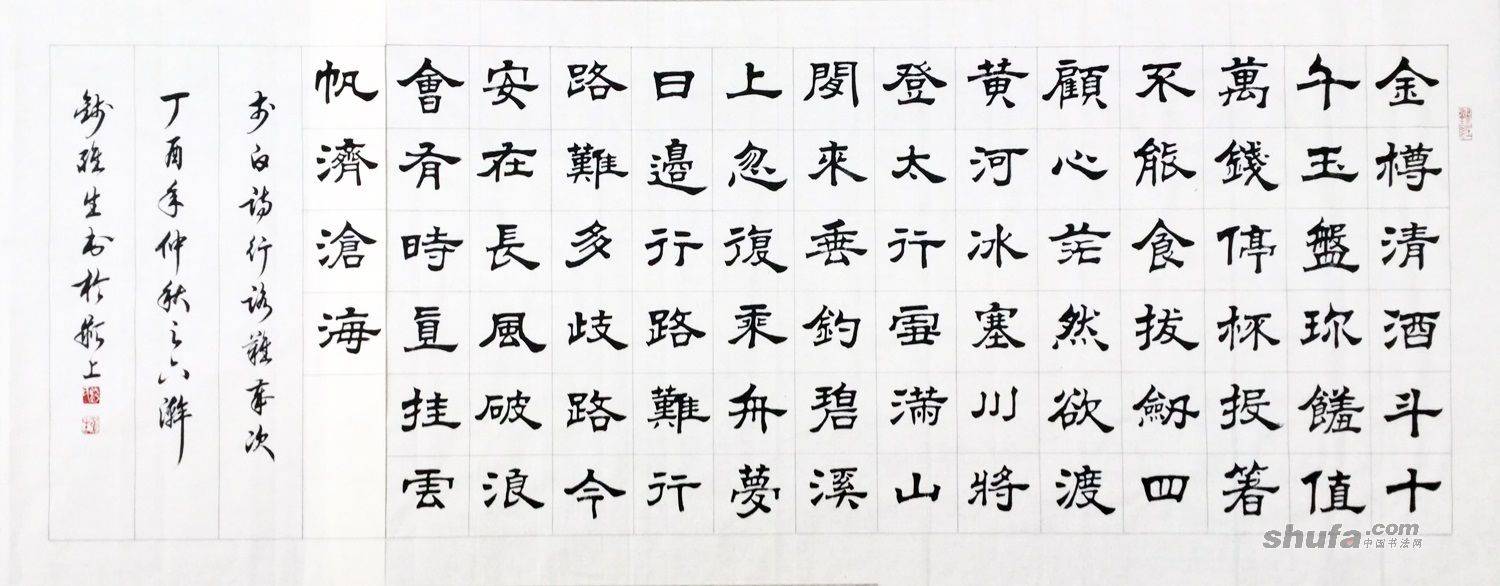 金樽清酒斗十
午玉盤珎饈值
萬錢停杯投箸
不能食拔劒四
顧心茫然欲渡
黃河冰塞川將
登太行雪滿山
閒來垂釣碧溪
上忽復乘舟夢
日邊行路難行
路難多歧路今
安在長風破浪
會有時直挂雲
帆濟滄海
白詩行路難
丁酉年仲秋之六
生書於上
shufa.com
中国书法网